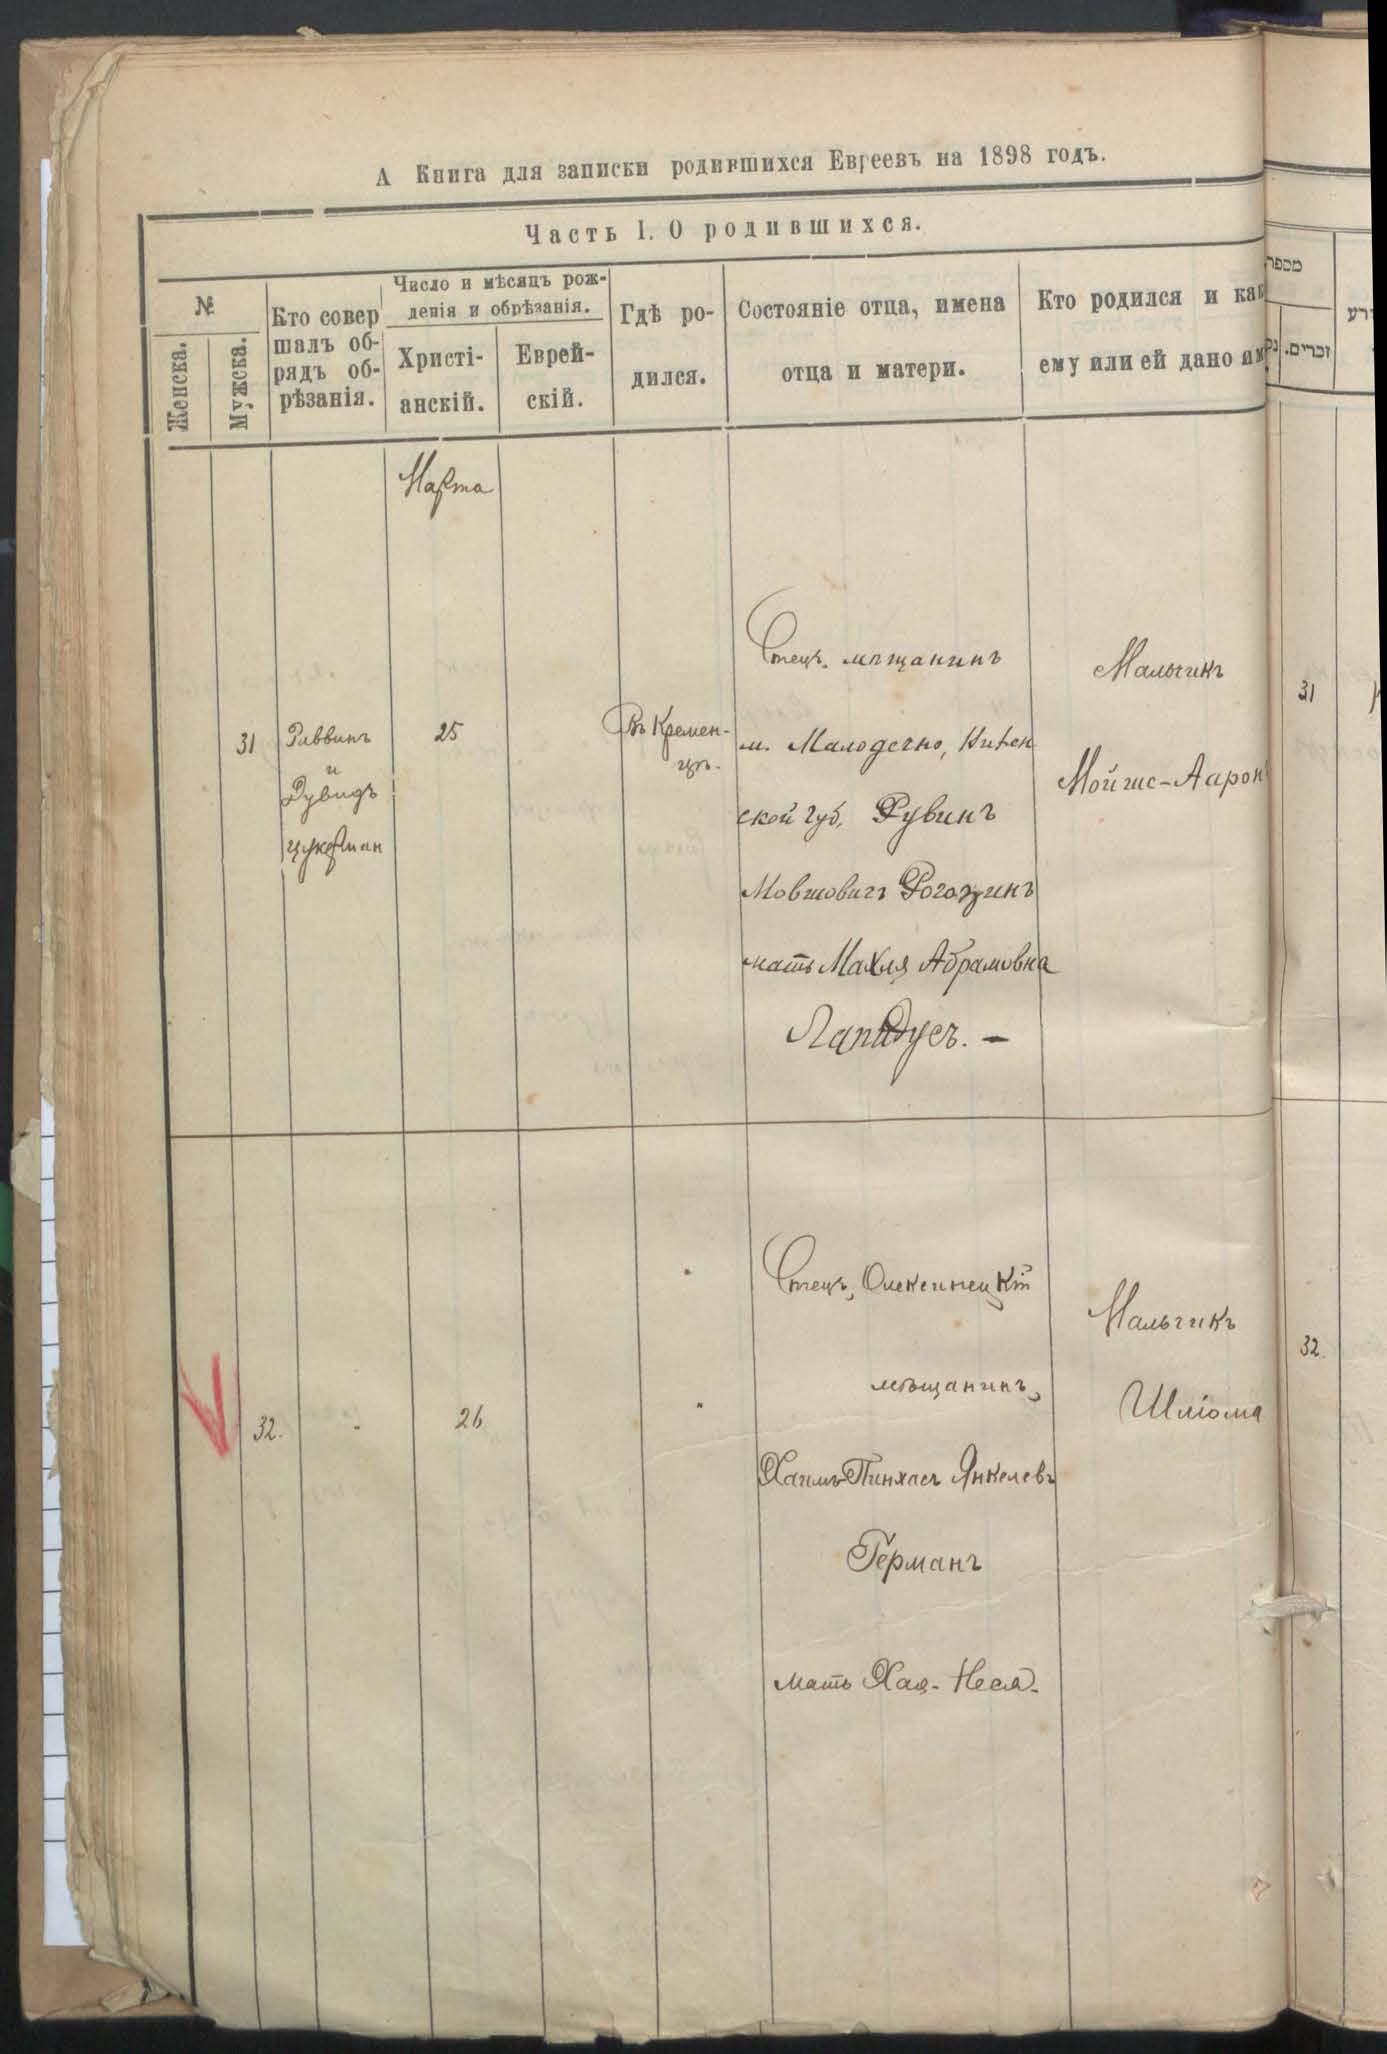 А Книга для записки родившихся Евреевъ на 1898 годъ.
Часть I. О родившихся.
№
Женска.
Мужска.
Кто совер
шалъ об-
рядъ об-
рѣзанія.
Число и мѣсяцъ рож-
денія и обрѣзанія.
Христі-
анскій.
Еврей-
скій.
Гдѣ ро-
дился.
Состояніе отца, имена
отца и матери.
Кто родился и как
ему или ей дано им
Марта
31
Раввинъ
и
Дувидъ
Цукерман
25
Въ Кремен-
цѣ.
Отецъ, мѣщанинъ
м. Малодечно,
ской губ. Рувинъ
Мовшовичъ Рогозинъ
мать Махля Абрамовна
Лапидусъ. —
Мальчикъ
Мойше-Аарон
32.
26
Отецъ, Олексинецкій
мѣщанинъ,
Хаимъ Пинхасъ Янкелевъ
Германъ
мать Хая-Неся.
Мальчикъ
Шліома
מספר
זכרים.
31
32.